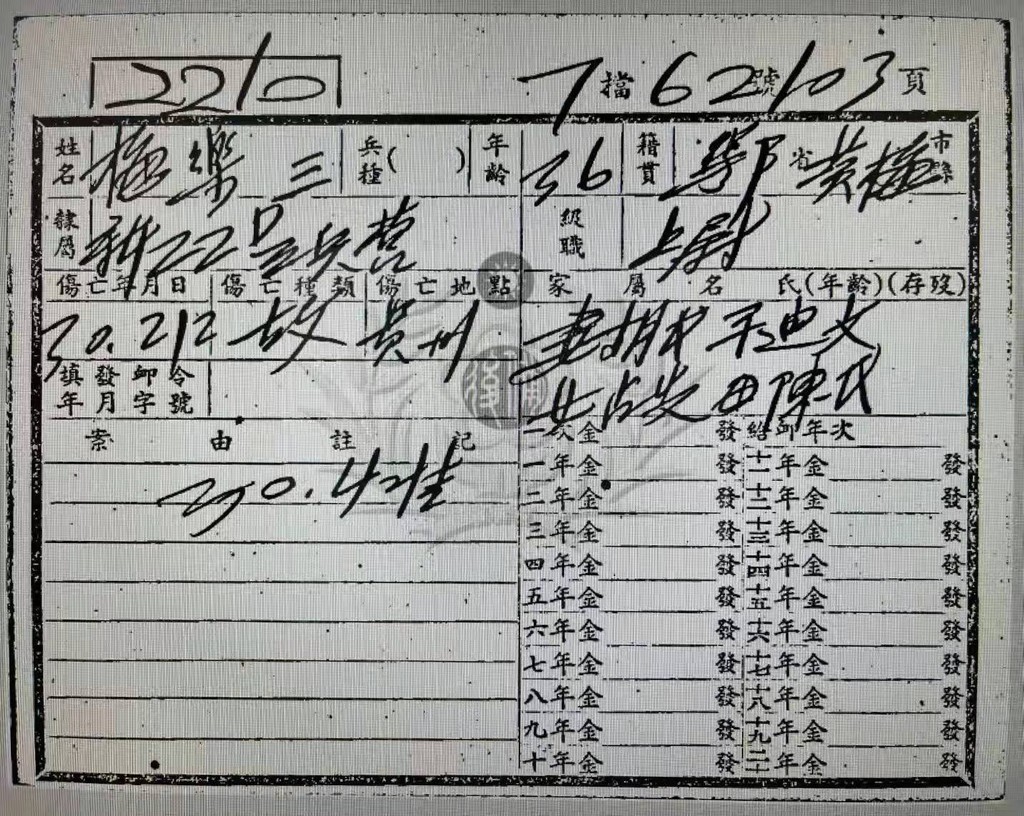 2210 7檔62號103頁
姓名 梅樂三 兵種( ) 年齡 36 籍貫 鄂省黃梅市縣
隸屬 新22D 兵营 級職 上尉
傷亡年月日 傷亡種類 傷亡地點 家屬名氏(年齡)(存歿)
30.212 故 貴州 妻胡氏 子迪文
填發卹令年月字號 女 母陳氏
案由註記 一次金 發給卹年次
30.4 一年金 發 十一年金 發
二年金 發 十二年金 發
三年金 發 十三年金 發
四年金 發 十四年金 發
五年金 發 十五年金 發
六年金 發 十六年金 發
七年金 發 十七年金 發
八年金 發 十八年金 發
九年金 發 十九年金 發
十年金 發 二十年金 發